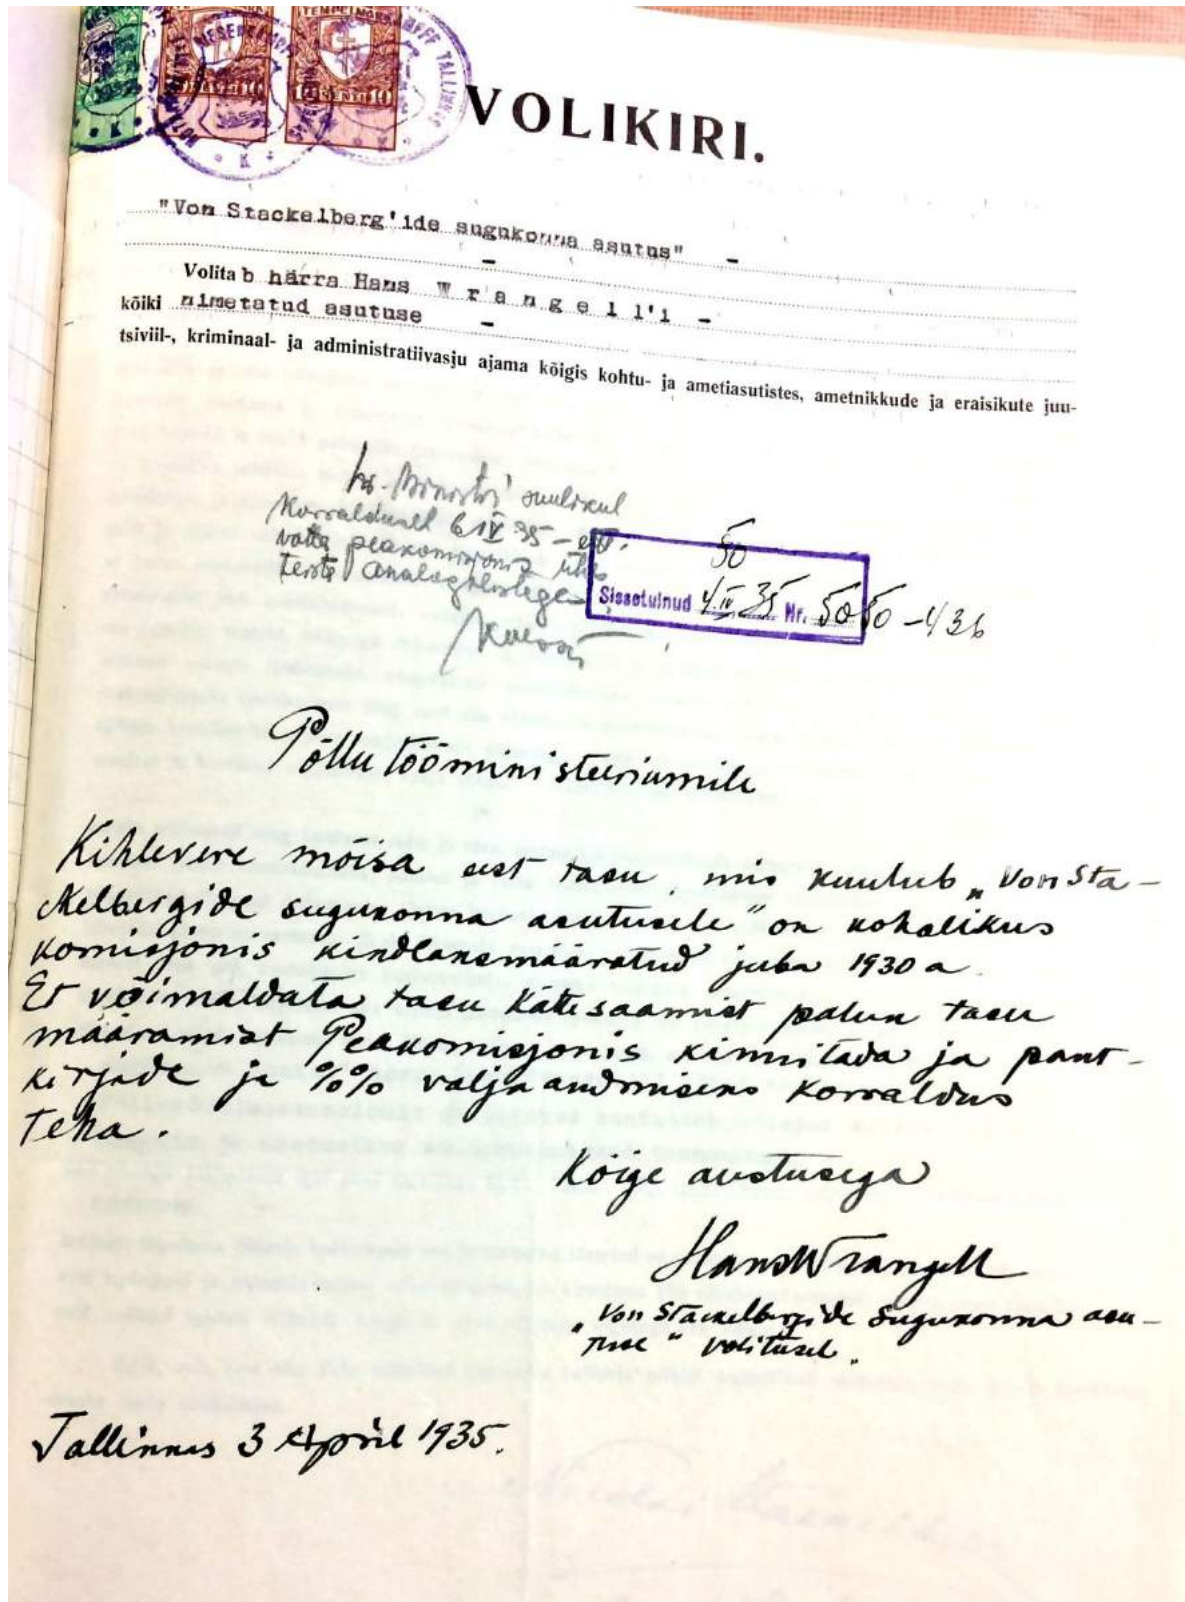 TEMPELMARK
TEMPELMARK
10 10
TALLINNAS
VOLIKIRI.
"Von Stackelberg'ide sugukonna asutus" -
-
Volitab härra Hans Wrangell'i -
kõiki nimetatud asutuse -
tsiviil-, kriminaal- ja administratiivasju ajama kõigis kohtu- ja ametiasutistes, ametnikkude ja eraisikute juu-
hr. Ministri suulisel
Korraldusel 6 IV 35 -
võtta peakomisjonis ühes
teiste analoogilistega
50
Sissetulnud 4.IV.35 Nr. 5050-436
Põllutööministeeriumile
Kihlevere mõisa eest tasu, mis kuulub „Von Sta-
ckelbergide sugukonna asutusele" on kohalikus
komisjonis kindlaksmääratud juba 1930 a.
Et võimaldata tasu kättesaamist palun tasu
määramist Peakomisjonis kinnitada ja pant-
kirjade ja %% väljaandmiseks korraldus
teha.
Kõige austusega
Hans Wrangell
„Von Stackelbergide Sugukonna asu-
tuse" volitusel.
Tallinnas 3 April 1935.